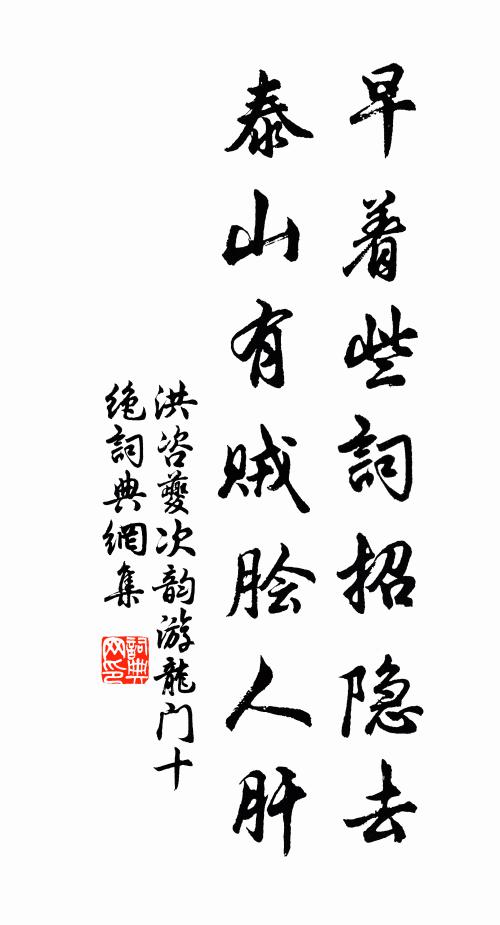 早着些詞招隐去
泰山有贼脍人肝
洪咨夔次韵游龍门十
绝詞典網集
詞典网印